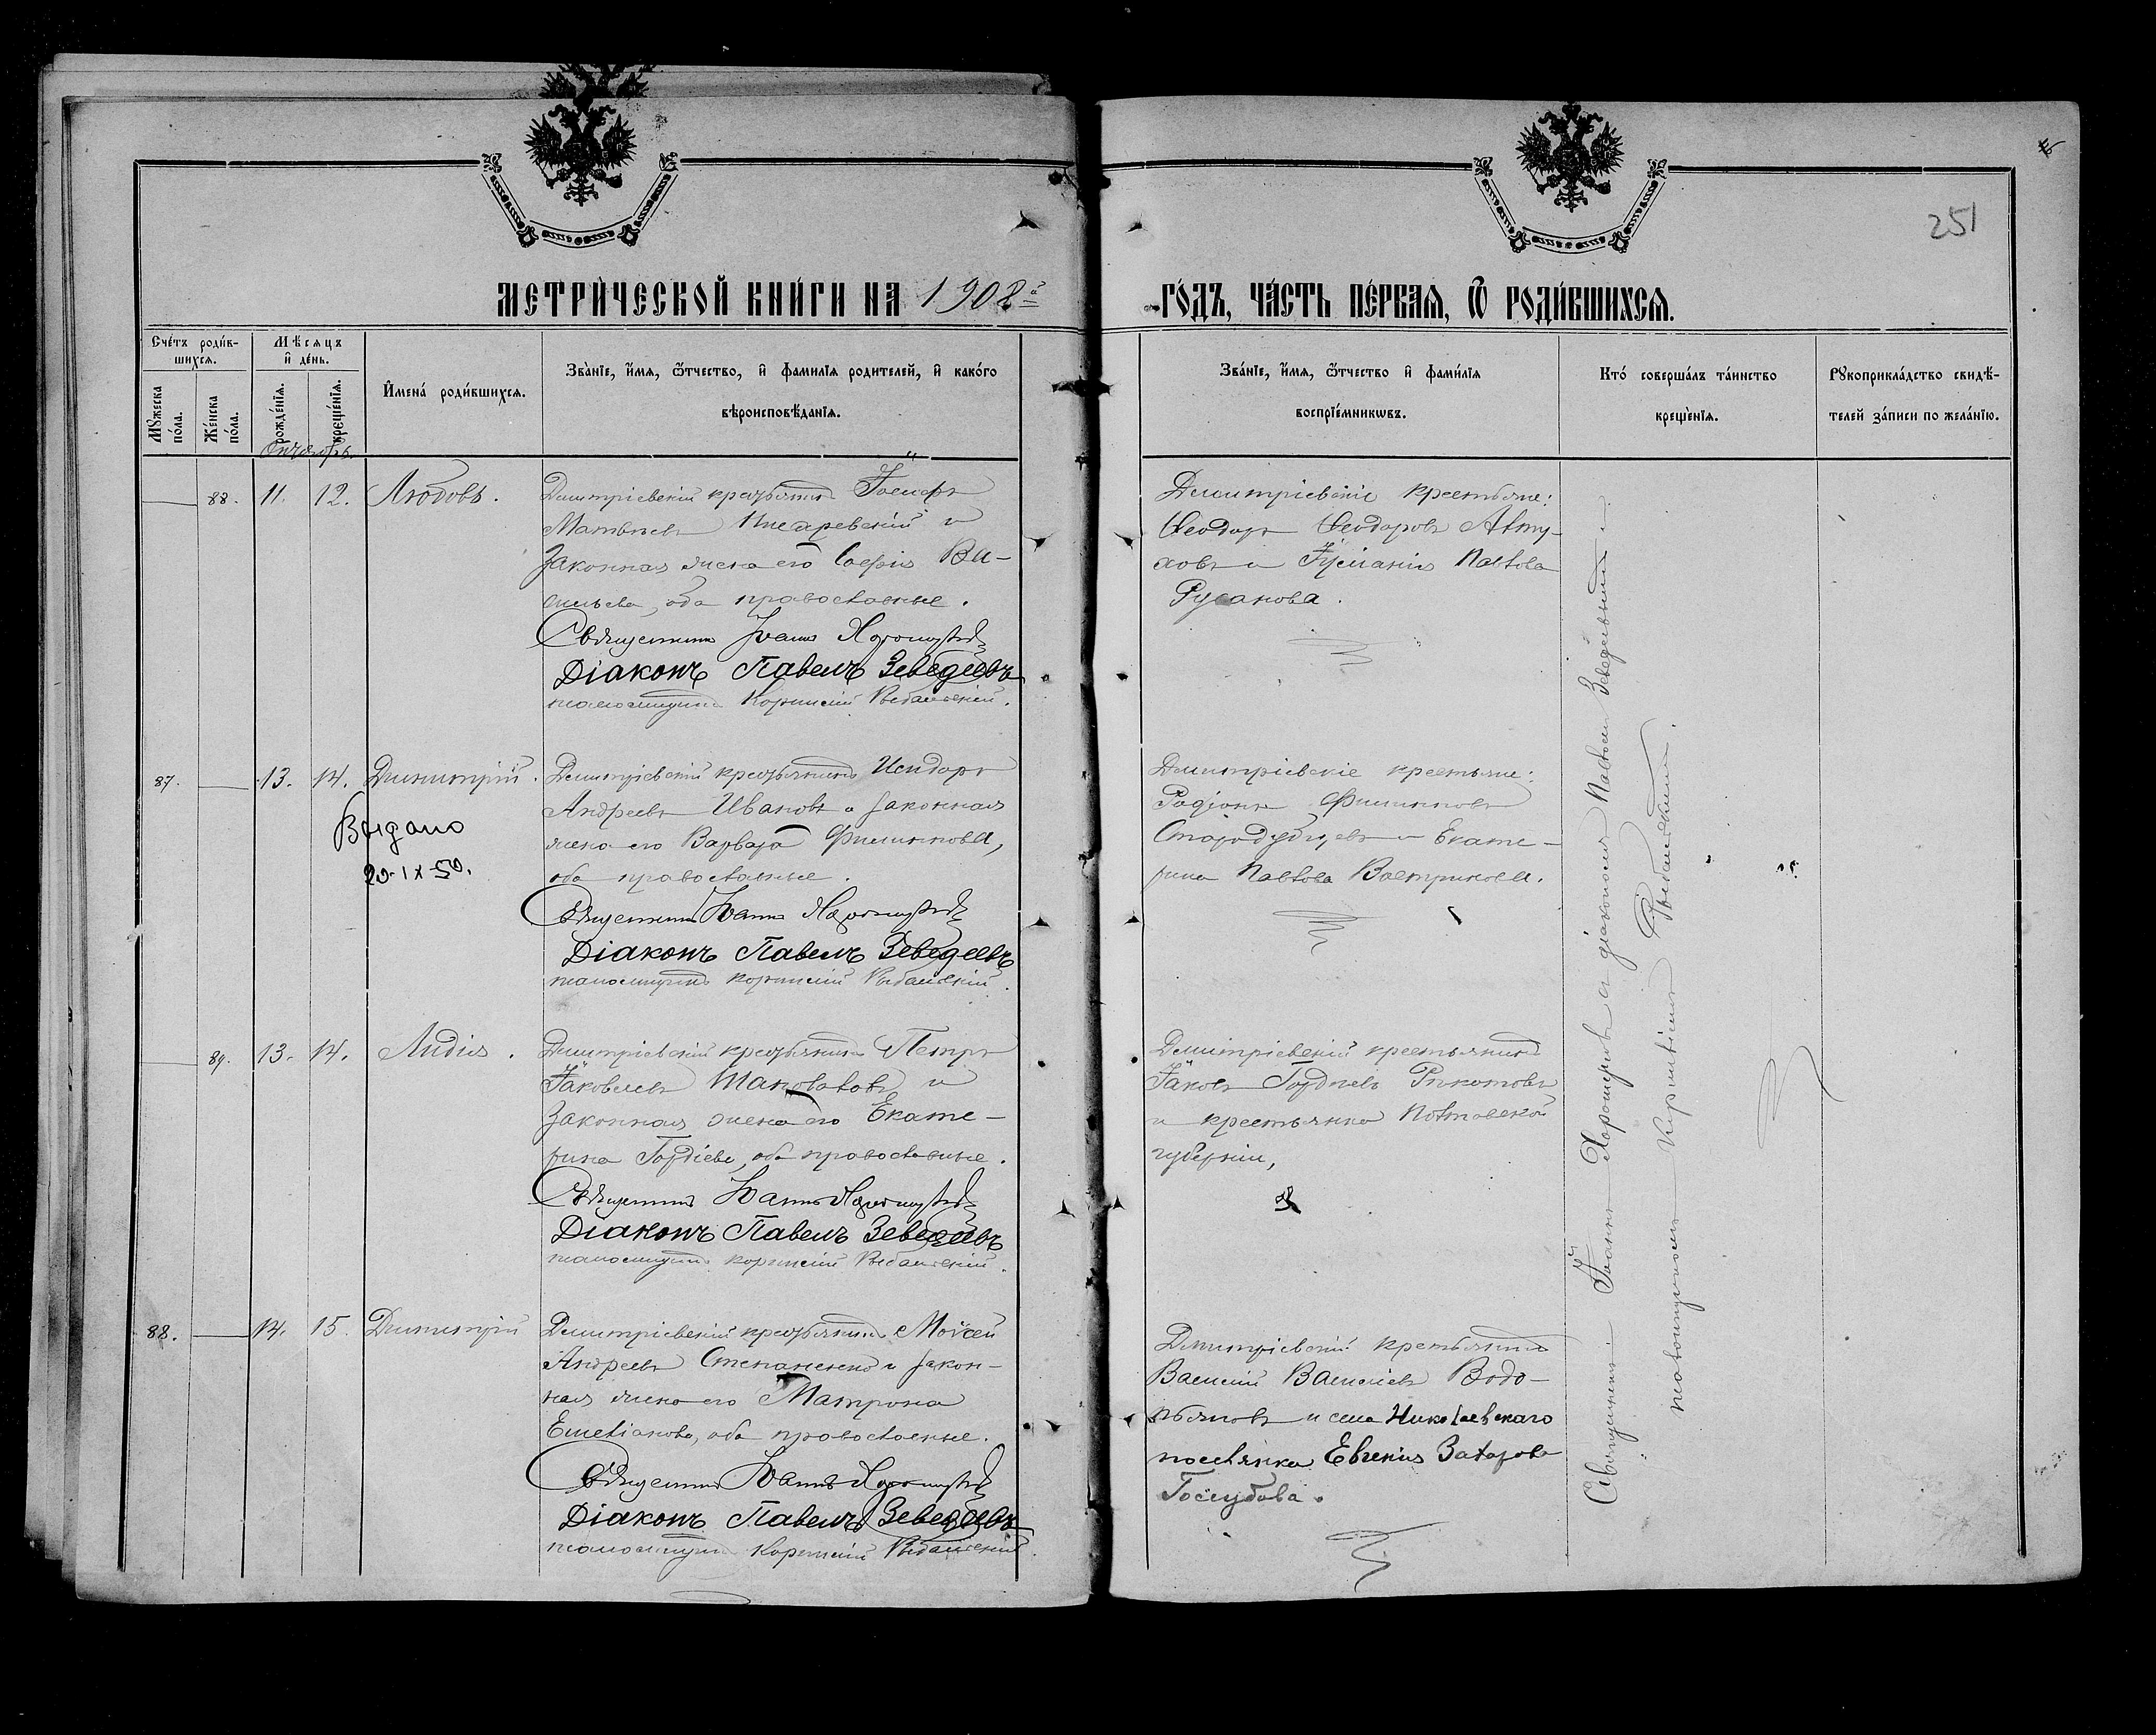 251
МЕТРИЧЕСКОЙ КНИГИ НА 1908й ГОДЪ, ЧАСТЬ ПЕРВАЯ, Ѿ РОДИВШИХСЯ.
Счетъ родив-
шихся.
Мужеска
пола.
Женска
пола.
Мѣсяцъ
и день.
рожденія.
крещенія.
Имена родившихся.
Званіе, имя, ѿтчество, и фамилія родителей, и какого
вѣроисповѣданія.
Званіе, имя, ѿтчество и фамилія
воспріемникѡвъ.
Кто совершалъ таинство
крещенія.
Рукоприкладство свидѣ-
телей записи по желанію.
Октябрь.
88. 11. 12. Любовь.
Димитріевскій крестьянинъ Іосифъ
Матвѣевъ Писаревскій и
законная жена его Софія Ва-
сильева, оба православные.
Священникъ Іоаннъ
Діаконъ Павелъ Зеведеевъ
псаломщикъ
Димитріевскіе крестьяне:
Ѳеодоръ Ѳеодоровъ Авту-
ховъ и Павлова
Русанова.
87. 13. 14. Димитрій.
Выдано
20-IX-50.
Димитріевскій крестьянинъ Исидоръ
Андреевъ Ивановъ и законная
жена его Варвара Филиппова,
оба православные.
Священникъ Іоаннъ
Діаконъ Павелъ Зеведеевъ
псаломщикъ
Димитріевскіе крестьяне:
Родіонъ Филипповъ
Стародубцевъ и Екате-
рина Павлова Вострикова.
89. 13. 14. Лидія.
Димитріевскій крестьянинъ Петръ
Іаковлевъ Шаповаловъ и
законная жена его Екате-
рина Гордіева, оба православные.
Священникъ Іоаннъ
Діаконъ Павелъ Зеведеевъ
псаломщикъ
Димитріевскій крестьянинъ
Іаковъ Гордѣевъ
и крестьянка Полтавской
губерніи,
88. 14. 15. Димитрій
Димитріевскій крестьянинъ Моісей
Андреевъ Степаненко и закон-
ная жена его Матрона
Емеліанова, оба православные.
Священникъ Іоаннъ
Діаконъ Павелъ Зеведеевъ
псаломщикъ
Димитріевскій крестьянинъ
Василій Васильевъ Водо-
пьяновъ и села Николаевскаго
поселянка Евгенія Захарова
Голубова.
Священникъ Іоаннъ съ діакономъ Павломъ Зеведеевымъ и
псаломщикомъ